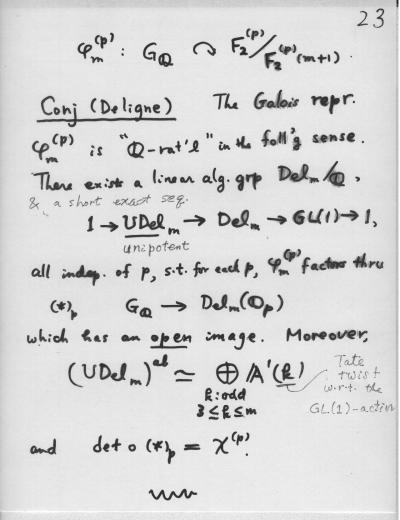 23
φ_m^(p) : G_ℚ ↷ F_2^(p) / F_2^(p)(m+1) .
Conj (Deligne) The Galois repr.
φ_m^(p) is "ℚ-rat'l" in the foll'g sense.
There exists a linear alg. grp Del_m/ℚ,
& a short exact seq.
1 → UDel_m → Del_m → GL(1) → 1,
unipotent
all indep. of p, s.t. for each p, φ_m^(p) factors thru
(*)_p G_ℚ → Del_m(ℚ_p)
which has an open image. Moreover,
(UDel_m)^ab ≃ ⊕ 𝔸'(k)
k: odd
3 ≤ k ≤ m
Tate
twist
w.r.t. the
GL(1)-action
and det ∘ (*)_p = χ^(p).